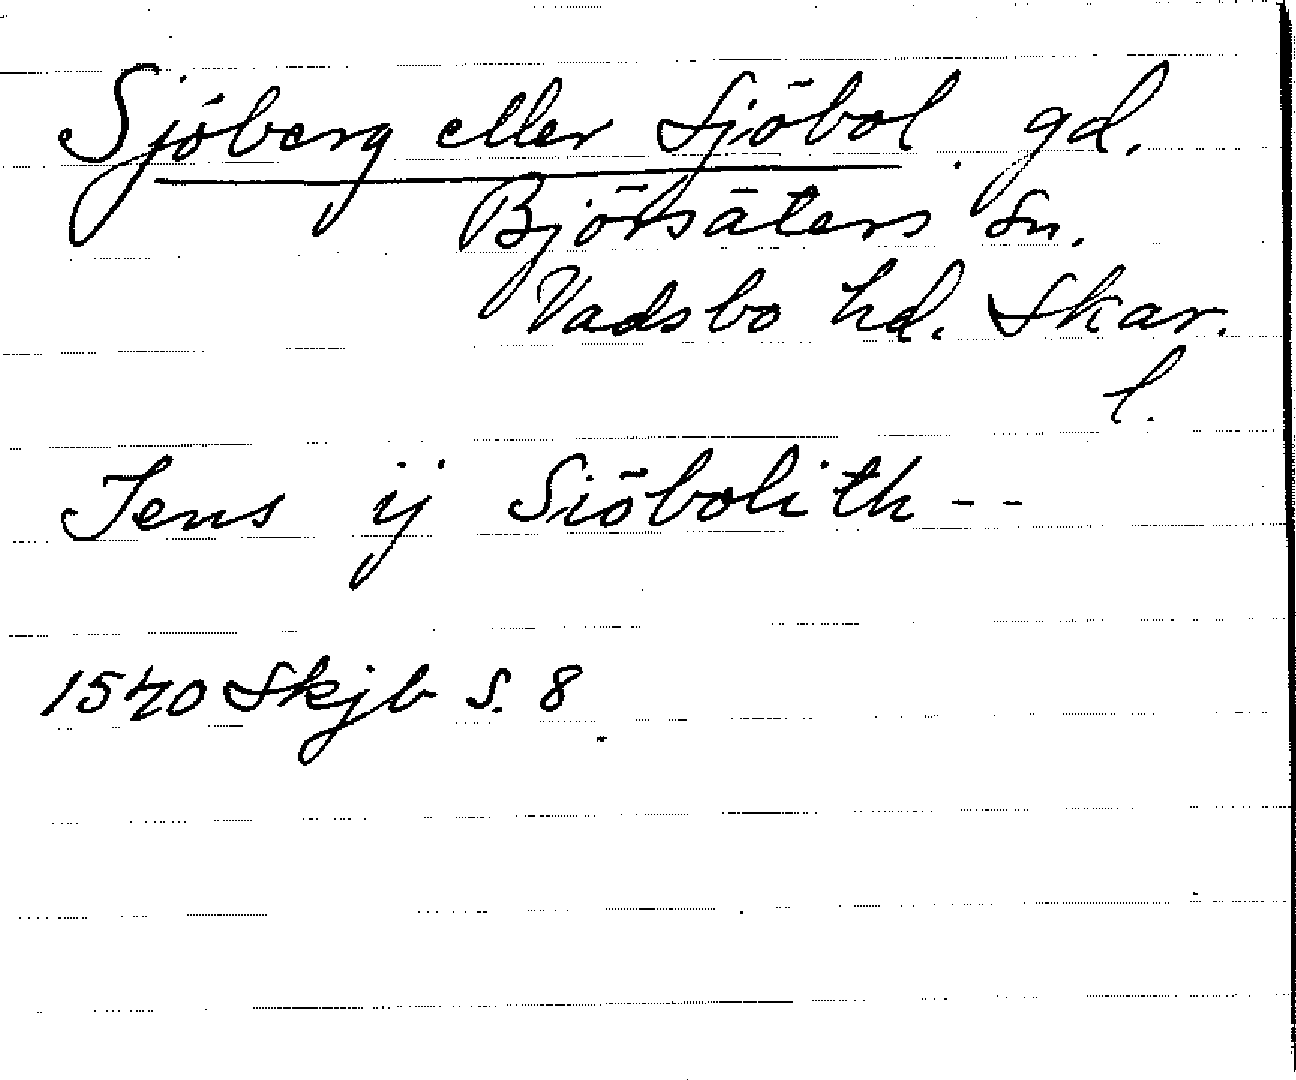 Sjöberg eller Sjöbol. gd.
Björsäters sn.
Vadsbo hd. Skar.
l.
Jens ij Siöbolith --
1540 Skjb s. 8